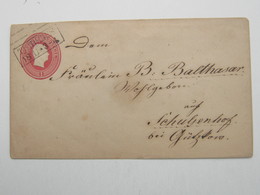 Dem
Fräulein B. Balthasar
Wohlgeboren
auf
Schulzenhof
bei Gützkow.